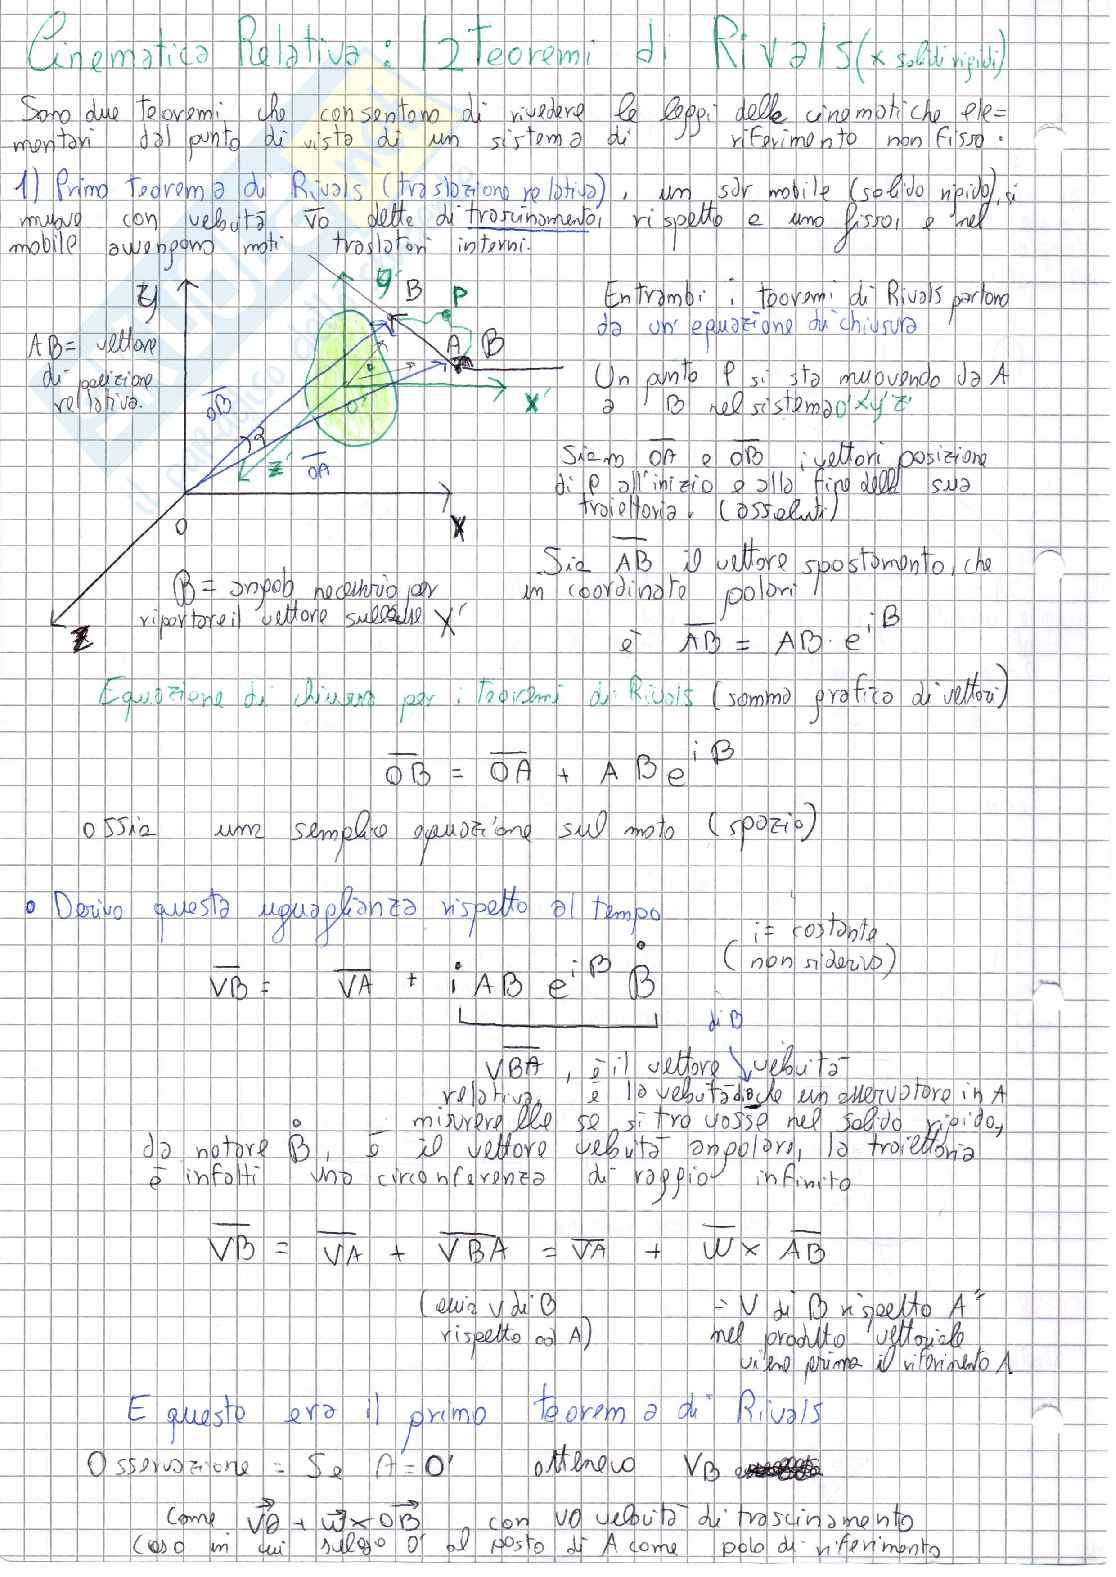 Cinematica Relativa: I 2 Teoremi di Rivals (x solidi rigidi)
Sono due teoremi che consentono di rivedere le leggi delle cinematiche ele=
mentari dal punto di vista di un sistema di riferimento non fisso.
1) Primo teorema di Rivals (traslazione relativa), un sdr mobile (solido rigido), si
muove con velocità Vo dette di trascinamento, rispetto e uno fisso, e nel
mobile avvengono moti traslatori interni.
y
y'
B
P
A
B
AB = vettore
di posizione
relativa.
OB
2
OA
O'
x'
z'
O
x
z
Entrambi i teoremi di Rivals partono
da un'equazione di chiusura
Un punto P si sta muovendo da A
a B nel sistema O'x'y'z'
Siano OA e OB i vettori posizione
di P all'inizio e alla fine della sua
traiettoria. (assoluti)
Sia AB il vettore spostamento, che
in coordinate polari
è AB = AB · e^iB
B = angolo necessario per
riportare il vettore sull'asse X'
Equazione di chiusura per i teoremi di Rivals (somma grafica di vettori)
OB = OA + A B e^iB
ossia una semplice equazione sul moto (spazio)
• Derivo questa uguaglianza rispetto al tempo
i = costante
(non si deriva)
VB = VA + i AB e^iB Ḃ
di B
VBA, è il vettore velocità
relativa, è la velocità che un osservatore in A
misurerebbe se si trovasse nel solido rigido,
da notare Ḃ, è il vettore velocità angolare, la traiettoria
è infatti una circonferenza di raggio infinito
VB = VA + VBA = VA + W x AB
(ovvia V di B
rispetto ad A)
= V di B rispetto A"
nel prodotto vettoriale
viene prima il riferimento A
E questo era il primo teorema di Rivals
Osservazione = Se A = O' ottenevo VB
come Vo + w x OB, con Vo velocità di trascinamento
(caso in cui scelgo O' al posto di A come polo di riferimento